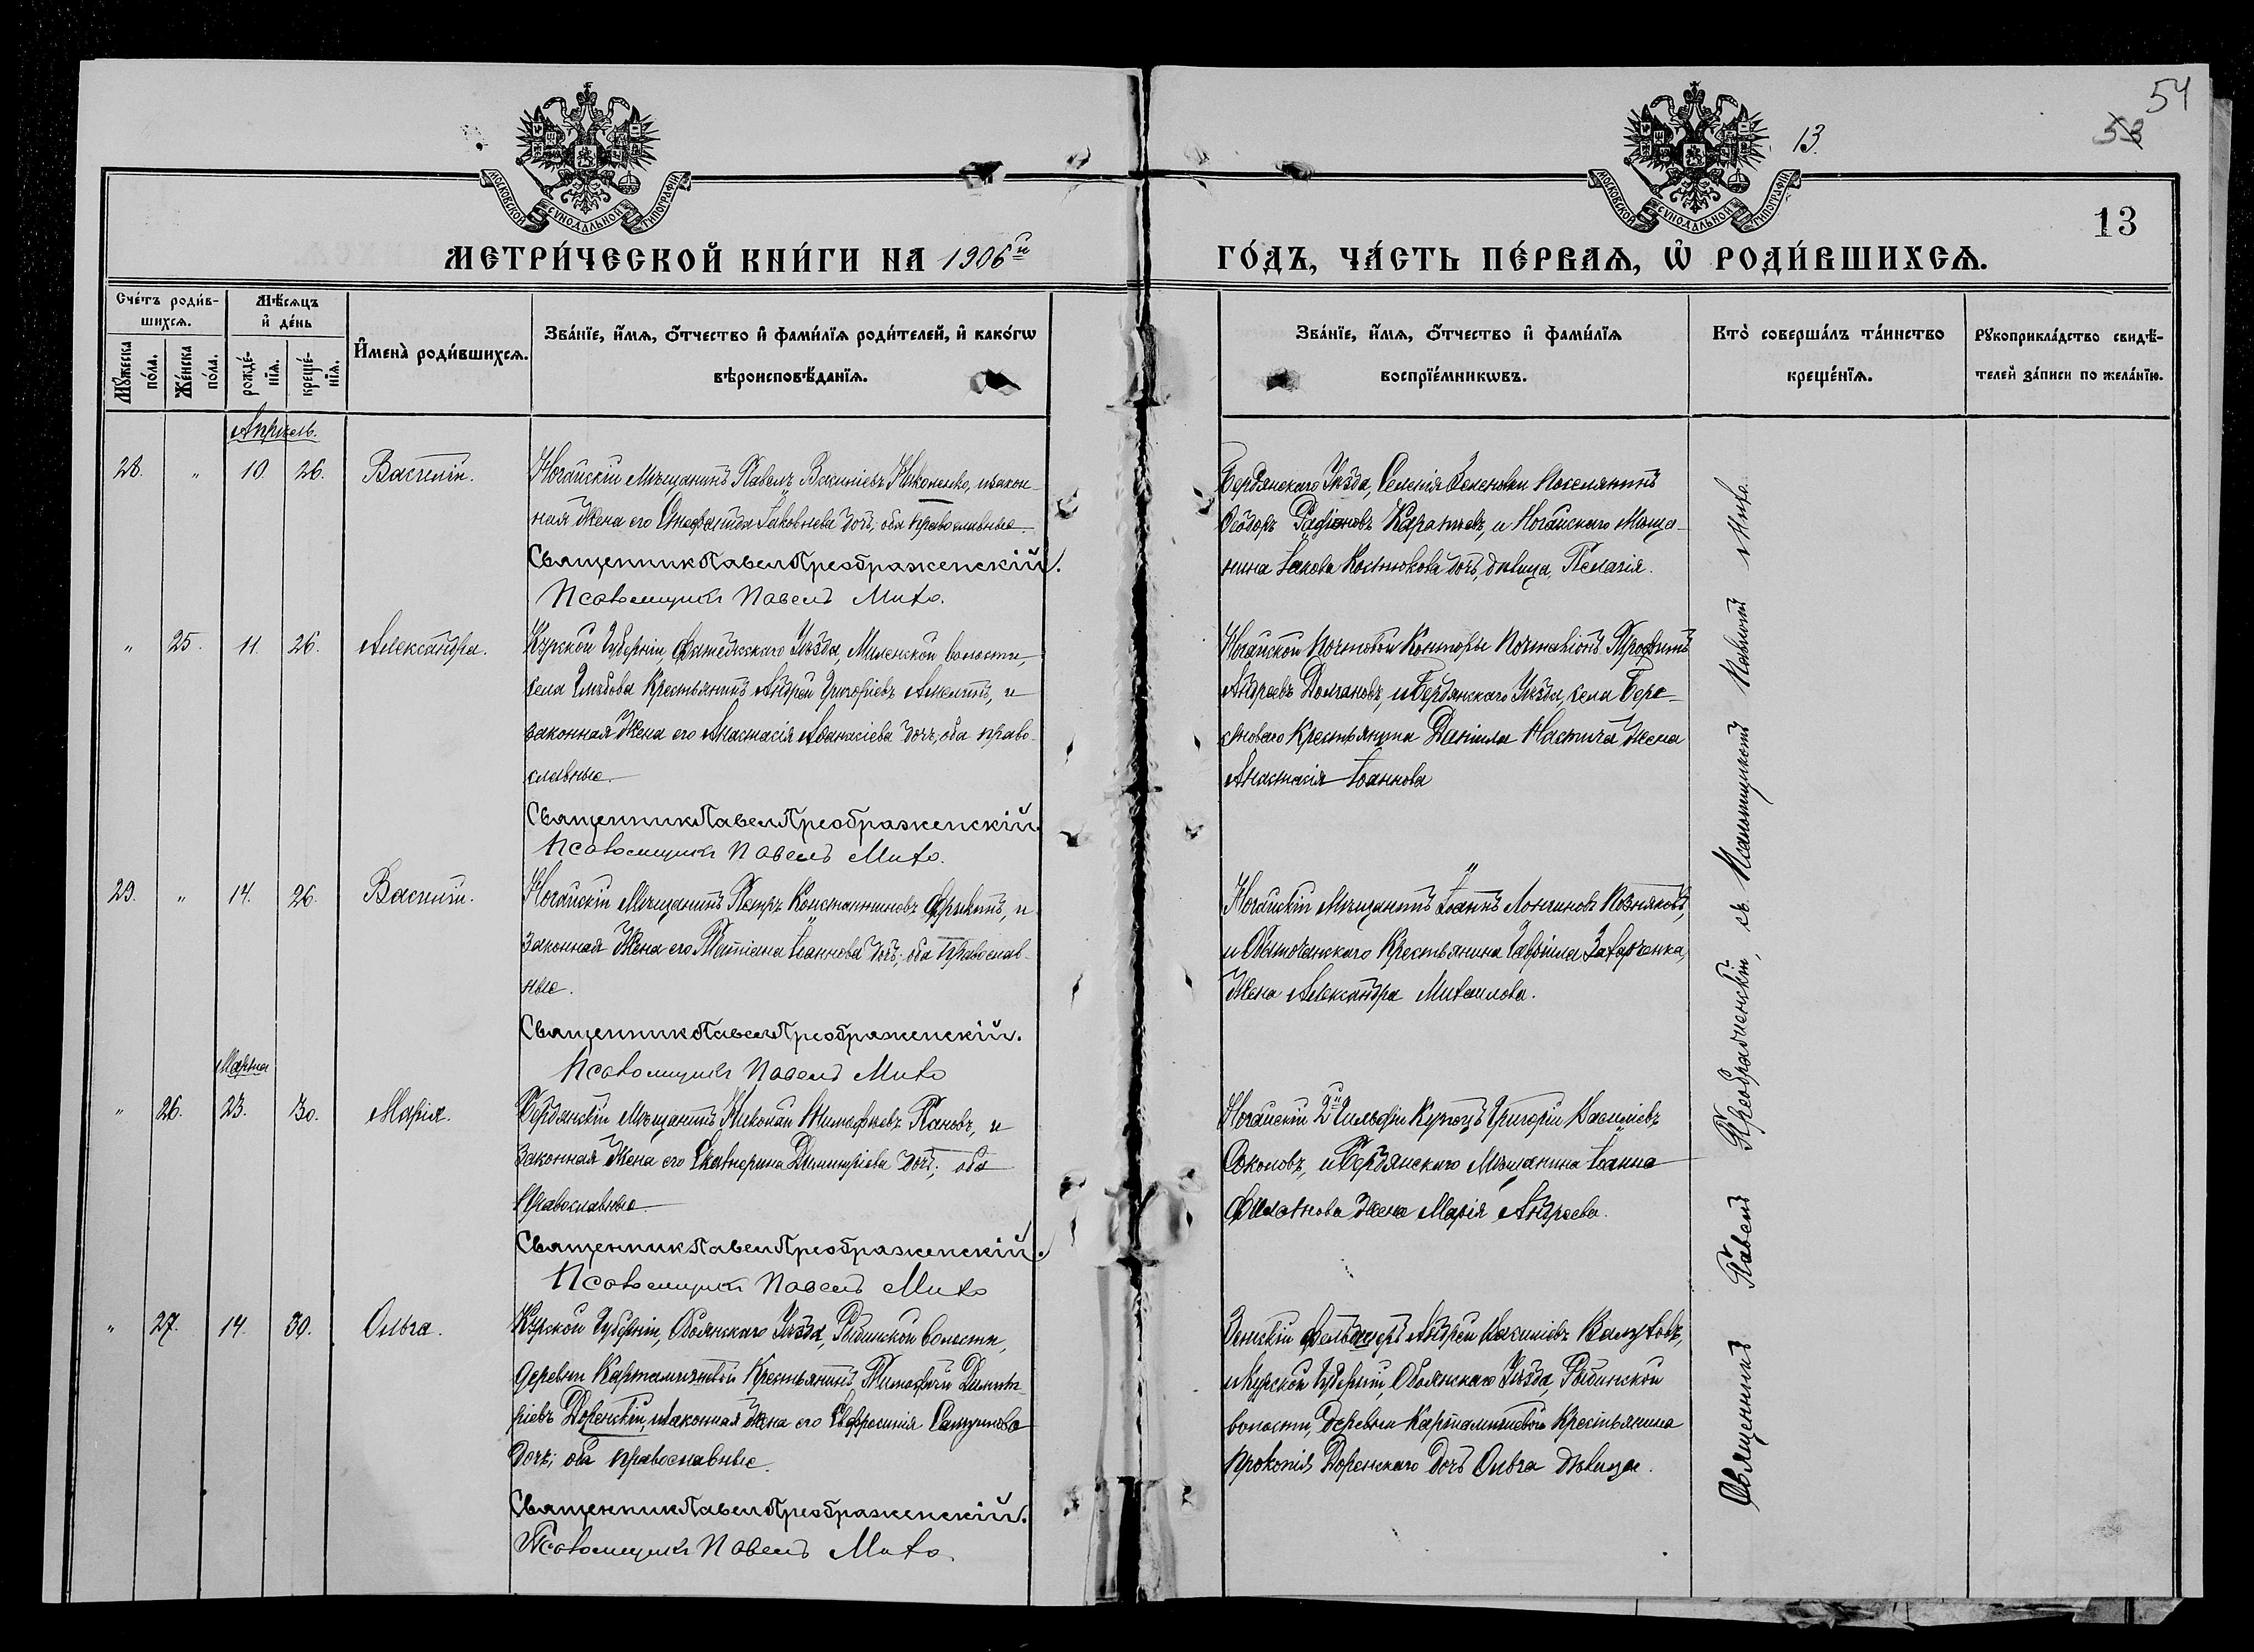 54
53
13.
13
МОСКОВСКОЙ СѴНОДАЛЬНОЙ ТИПОГРАФІИ
МОСКОВСКОЙ СѴНОДАЛЬНОЙ ТИПОГРАФІИ
МЕТРИ́ЧЕСКОЙ КНИ́ГИ НА 1906й ГО́ДЪ, ЧА́СТЬ ПЕ́РВАѦ, Ѡ҆ РОДИ́ВШИХСѦ.
Сче́тъ роди́в-
шихсѧ.
Мѣ́сѧцъ
и҆ де́нь
Мꙋ́жеска по́ла.
Же́нска по́ла.
рожде́-нїѧ.
креще́-нїѧ.
И҆мена̀ роди́вшихсѧ.
Зва́нїе, и҆́мѧ, ѻ҆́тчество и҆ фами́лїѧ роди́телей, и҆ како́гѡ
вѣроисповѣ́данїѧ.
Зва́нїе, и҆́мѧ, ѻ҆́тчество и҆ фами́лїѧ
воспрїе́мникѡвъ.
Кто̀ соверша́лъ та́инство
креще́нїѧ.
Рꙋкоприкла́дство свидѣ́-
телей за́писи по жела́нїю.
Апрѣль.
28. " 10. 26. Василій.
Ногайскій Мѣщанинъ Павелъ Василіевъ Никоненко, и закон-
ная жена его Яковлева дочь, оба православные.
Священник Павел Преображенскій.
Псаломщикъ Павелъ Михо.
Бердянскаго Уѣзда, Селенія Поселянинъ
Ѳеодоръ и Ногайскаго Мѣща-
нина Іакова Костюкова дочь, дѣвица, Пелагія.
" 25. 11. 26. Александра.
Курской Губерніи, Фатежскаго Уѣзда, волости,
села Крестьянинъ Андрей Григоріевъ и
законная Жена его Анастасія Аѳанасіева дочь, оба право-
славные.
Священник Павел Преображенскій.
Псаломщикъ Павелъ Михо.
Ногайской Почтовой Конторы Почталіонъ Трофимъ
Андреевъ Долгановъ, и Бердянскаго Уѣзда, села Бере-
стоваго Крестьянина Даніила жена
Анастасія Іоаннова
29. " 14. 26. Василій.
Ногайскій Мѣщанинъ Петръ Константиновъ и
законная Жена его Татіана Іоаннова дочь; оба православ-
ные.
Священник Павел Преображенскій.
Псаломщикъ Павелъ Михо
Ногайскій Мѣщанинъ Іоаннъ Лонгиновъ Позняковъ,
и Обиточанскаго Крестьянина Гавріила Захарченка,
Жена Александра Михаилова.
Марта
" 26. 23. 30. Марія.
Бердянскій Мѣщанинъ Николай Тимофѣевъ Пановъ, и
законная Жена его Екатерина Димитріева дочь; оба
Православные
Священник Павел Преображенскій.
Псаломщикъ Павелъ Михо
Ногайскій 2й Гильдіи Купецъ Григорій Василіевъ
Соколовъ, и Бердянскаго Мѣщанина Іоанна
Филатнова жена Марія Андреева.
" 27. 14. 30. Ольга.
Курской Губерніи, Обоянскаго Уѣзда, Рыбинской волости,
деревни Картамышевой Крестьянинъ Тимофей Димит-
ріевъ Доренскій, и законная жена его Евфросинія
дочь; оба православные.
Священник Павел Преображенскій.
Псаломщикъ Павелъ Михо.
Земскій Фельдшеръ Андрей Василіевъ
и Курской Губерніи, Обоянскаго Уѣзда, Рыбинской
волости, деревни Картамышевой Крестьянина
Прокопія Доренскаго дочь Ольга дѣвица.
Священникъ Павелъ Преображенскій, съ Псаломщикомъ Павломъ Михо.